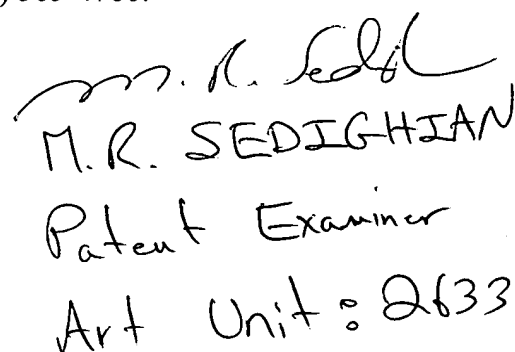 M. R. Sedi
M.R. SEDIGHIAN
Patent Examiner
Art Unit: 2633